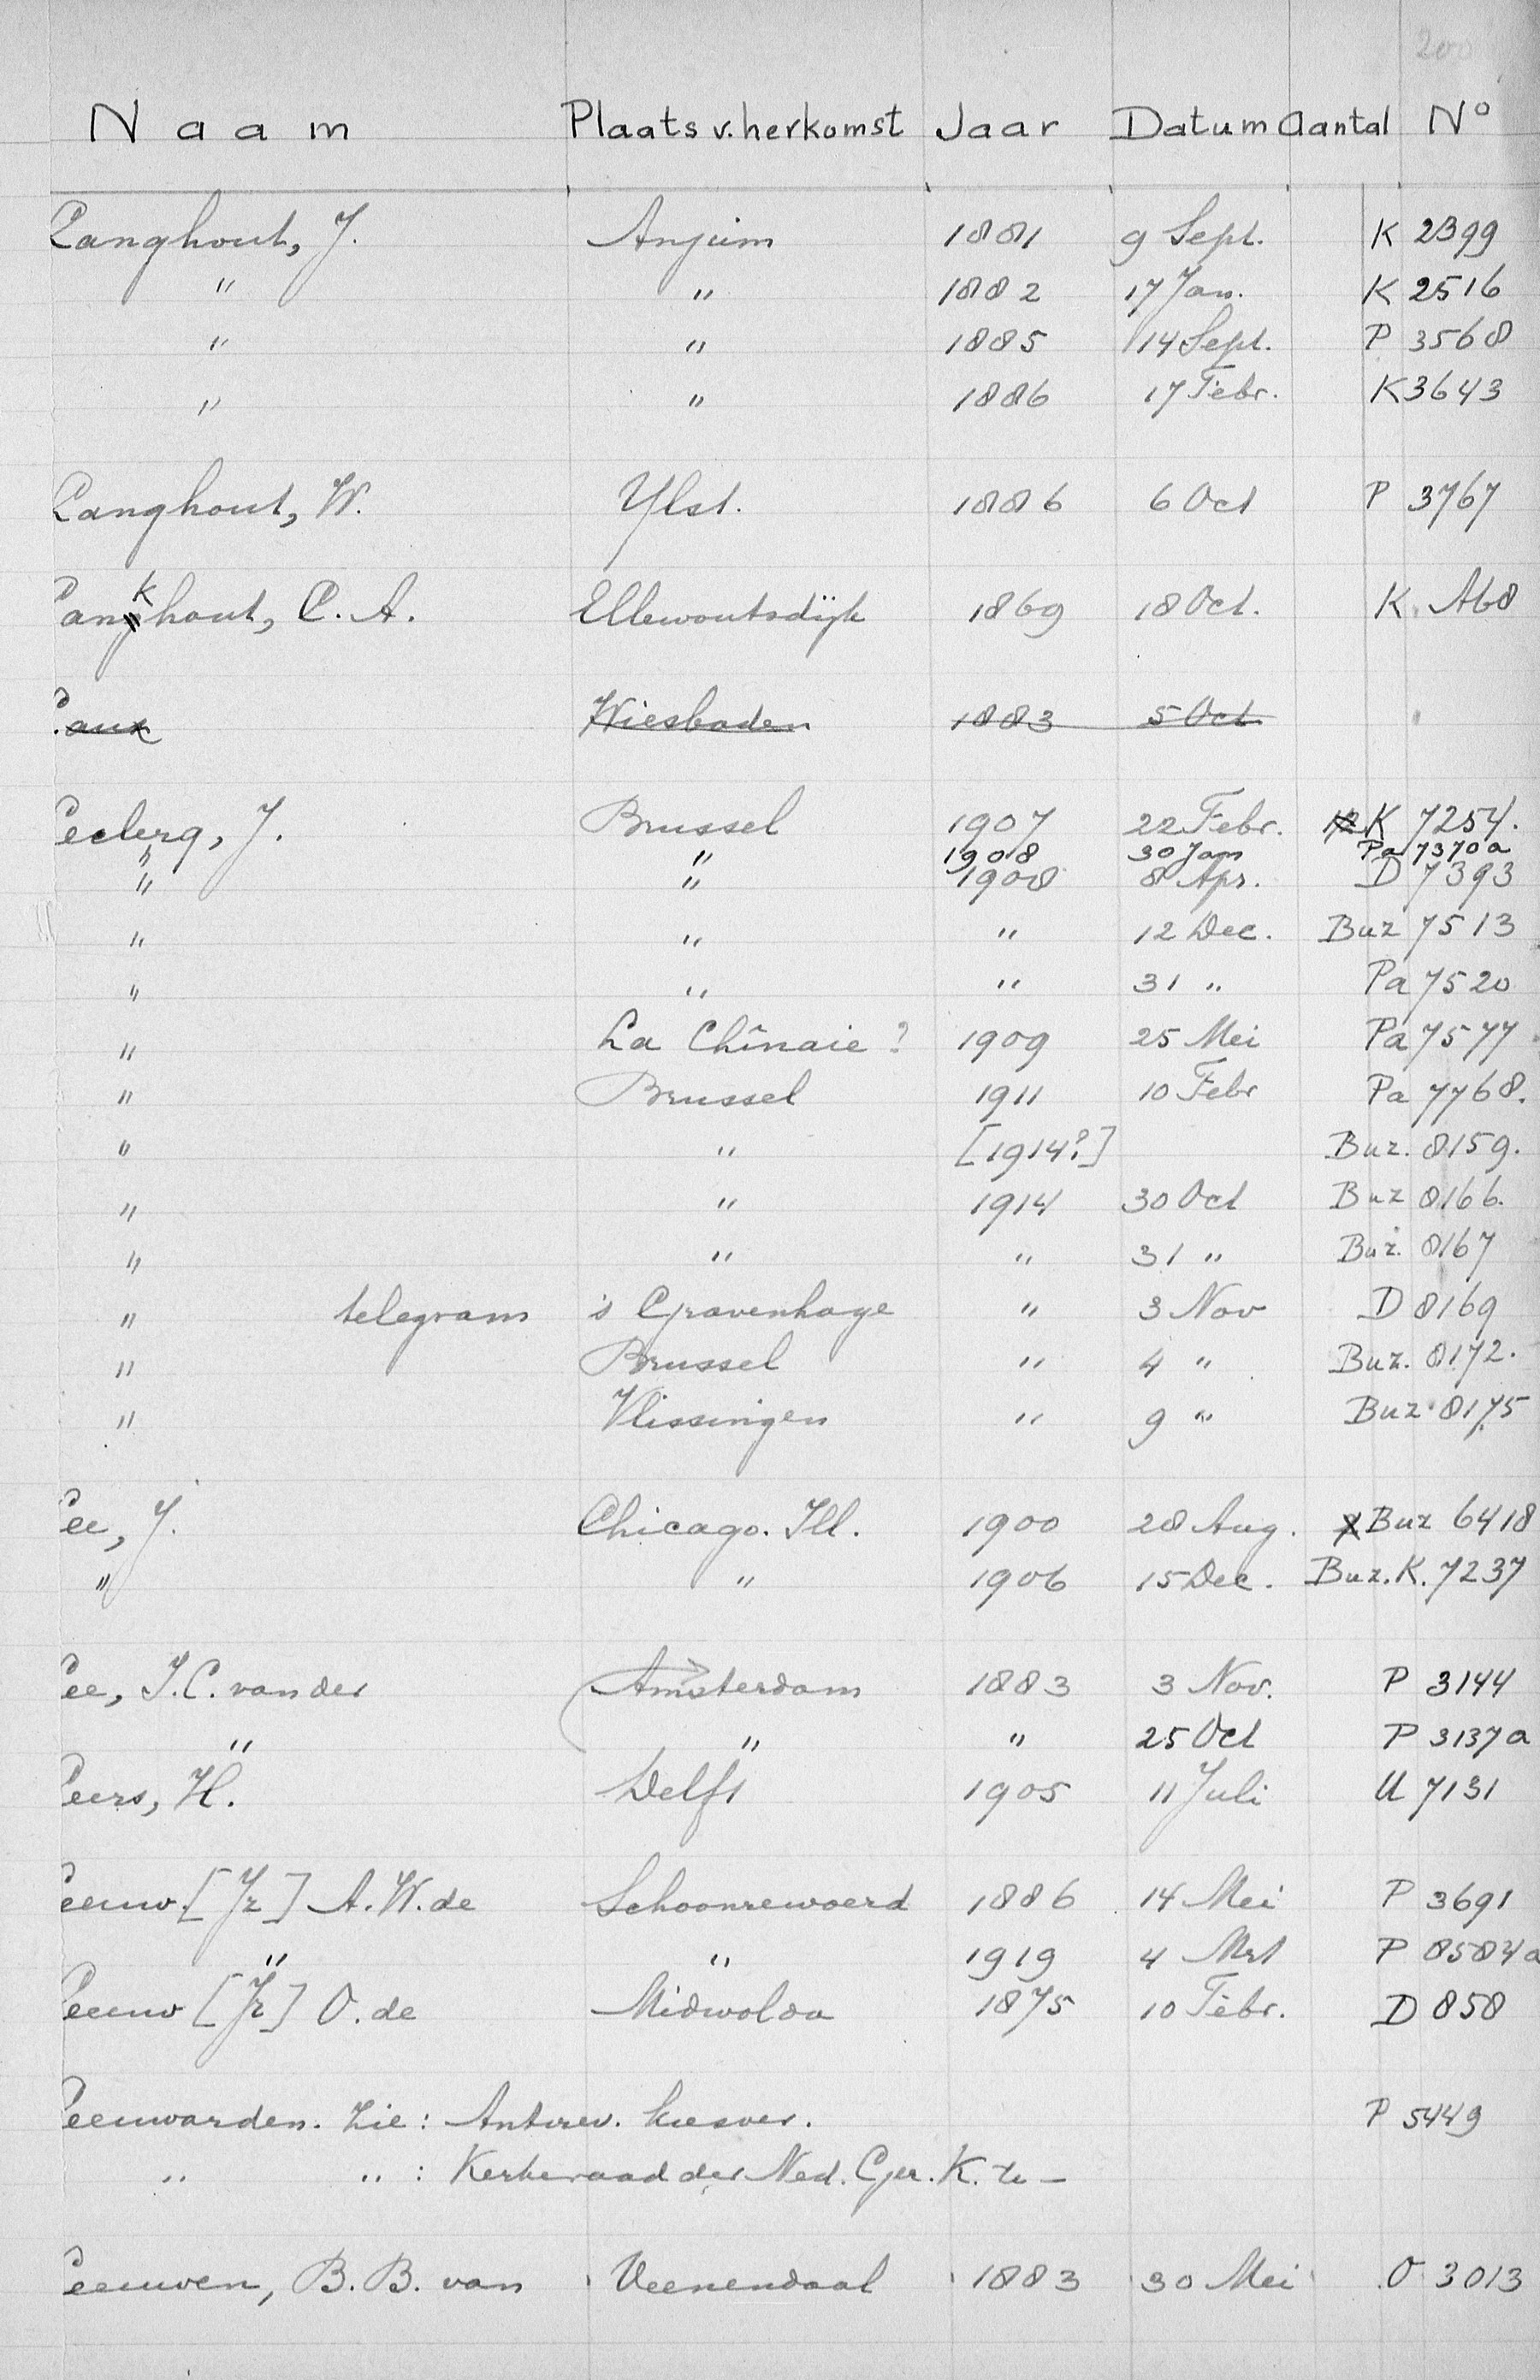 200
Naam Plaats v. herkomst Jaar Datum Aantal No
Langhout, J. Anjum 1881 9 Sept. K 2399
" " 1882 17 Jan. K 2516
" " 1885 14 Sept. P 3568
" " 1886 17 Febr. K 3643
Langhout, W. Ylst. 1886 6 Oct P 3767
Lankhout, C. A. Ellewoutsdijk 1869 18 Oct. K. A68
Laux Wiesbaden 1883 5 Oct
Leclerq, J. Brussel 1907 22 Febr. K 7254.
" " 1908 30 Jan Pa 7370a
" " 1908 8 Apr. D 7393
" " " 12 Dec. Buz 7513
" " " 31 " Pa 7520
" La Chînaie ? 1909 25 Mei Pa 7577
" Brussel 1911 10 Febr Pa 7768.
" " [1914?] Buz. 8159.
" " 1914 30 Oct Buz 8166.
" " " 31 " Buz. 8167
" telegram 's Gravenhage " 3 Nov D 8169
" Brussel " 4 " Buz. 8172.
" Vlissingen " 9 " Buz. 8175
Lee, J. Chicago. Ill. 1900 28 Aug. Buz 6418
" " 1906 15 Dec. Buz. K. 7237
Lee, J. C. van der Amsterdam 1883 3 Nov. P 3144
" " " 25 Oct P 3137a
Leers, H. Delft 1905 11 Juli U 7131
Leeuw. [Jz] A. W. de Schoonrewoerd 1886 14 Mei P 3691
" " 1919 4 Mrt P 8584a
Leeuw [Jz] O. de Midwolda 1875 10 Febr. D 858
Leeuwarden. Zie: Antirev. kiesver. P 5449
" " : Kerkeraad der Ned. Ger. K. te —
Leeuwen, B. B. van Veenendaal 1883 30 Mei O 3013